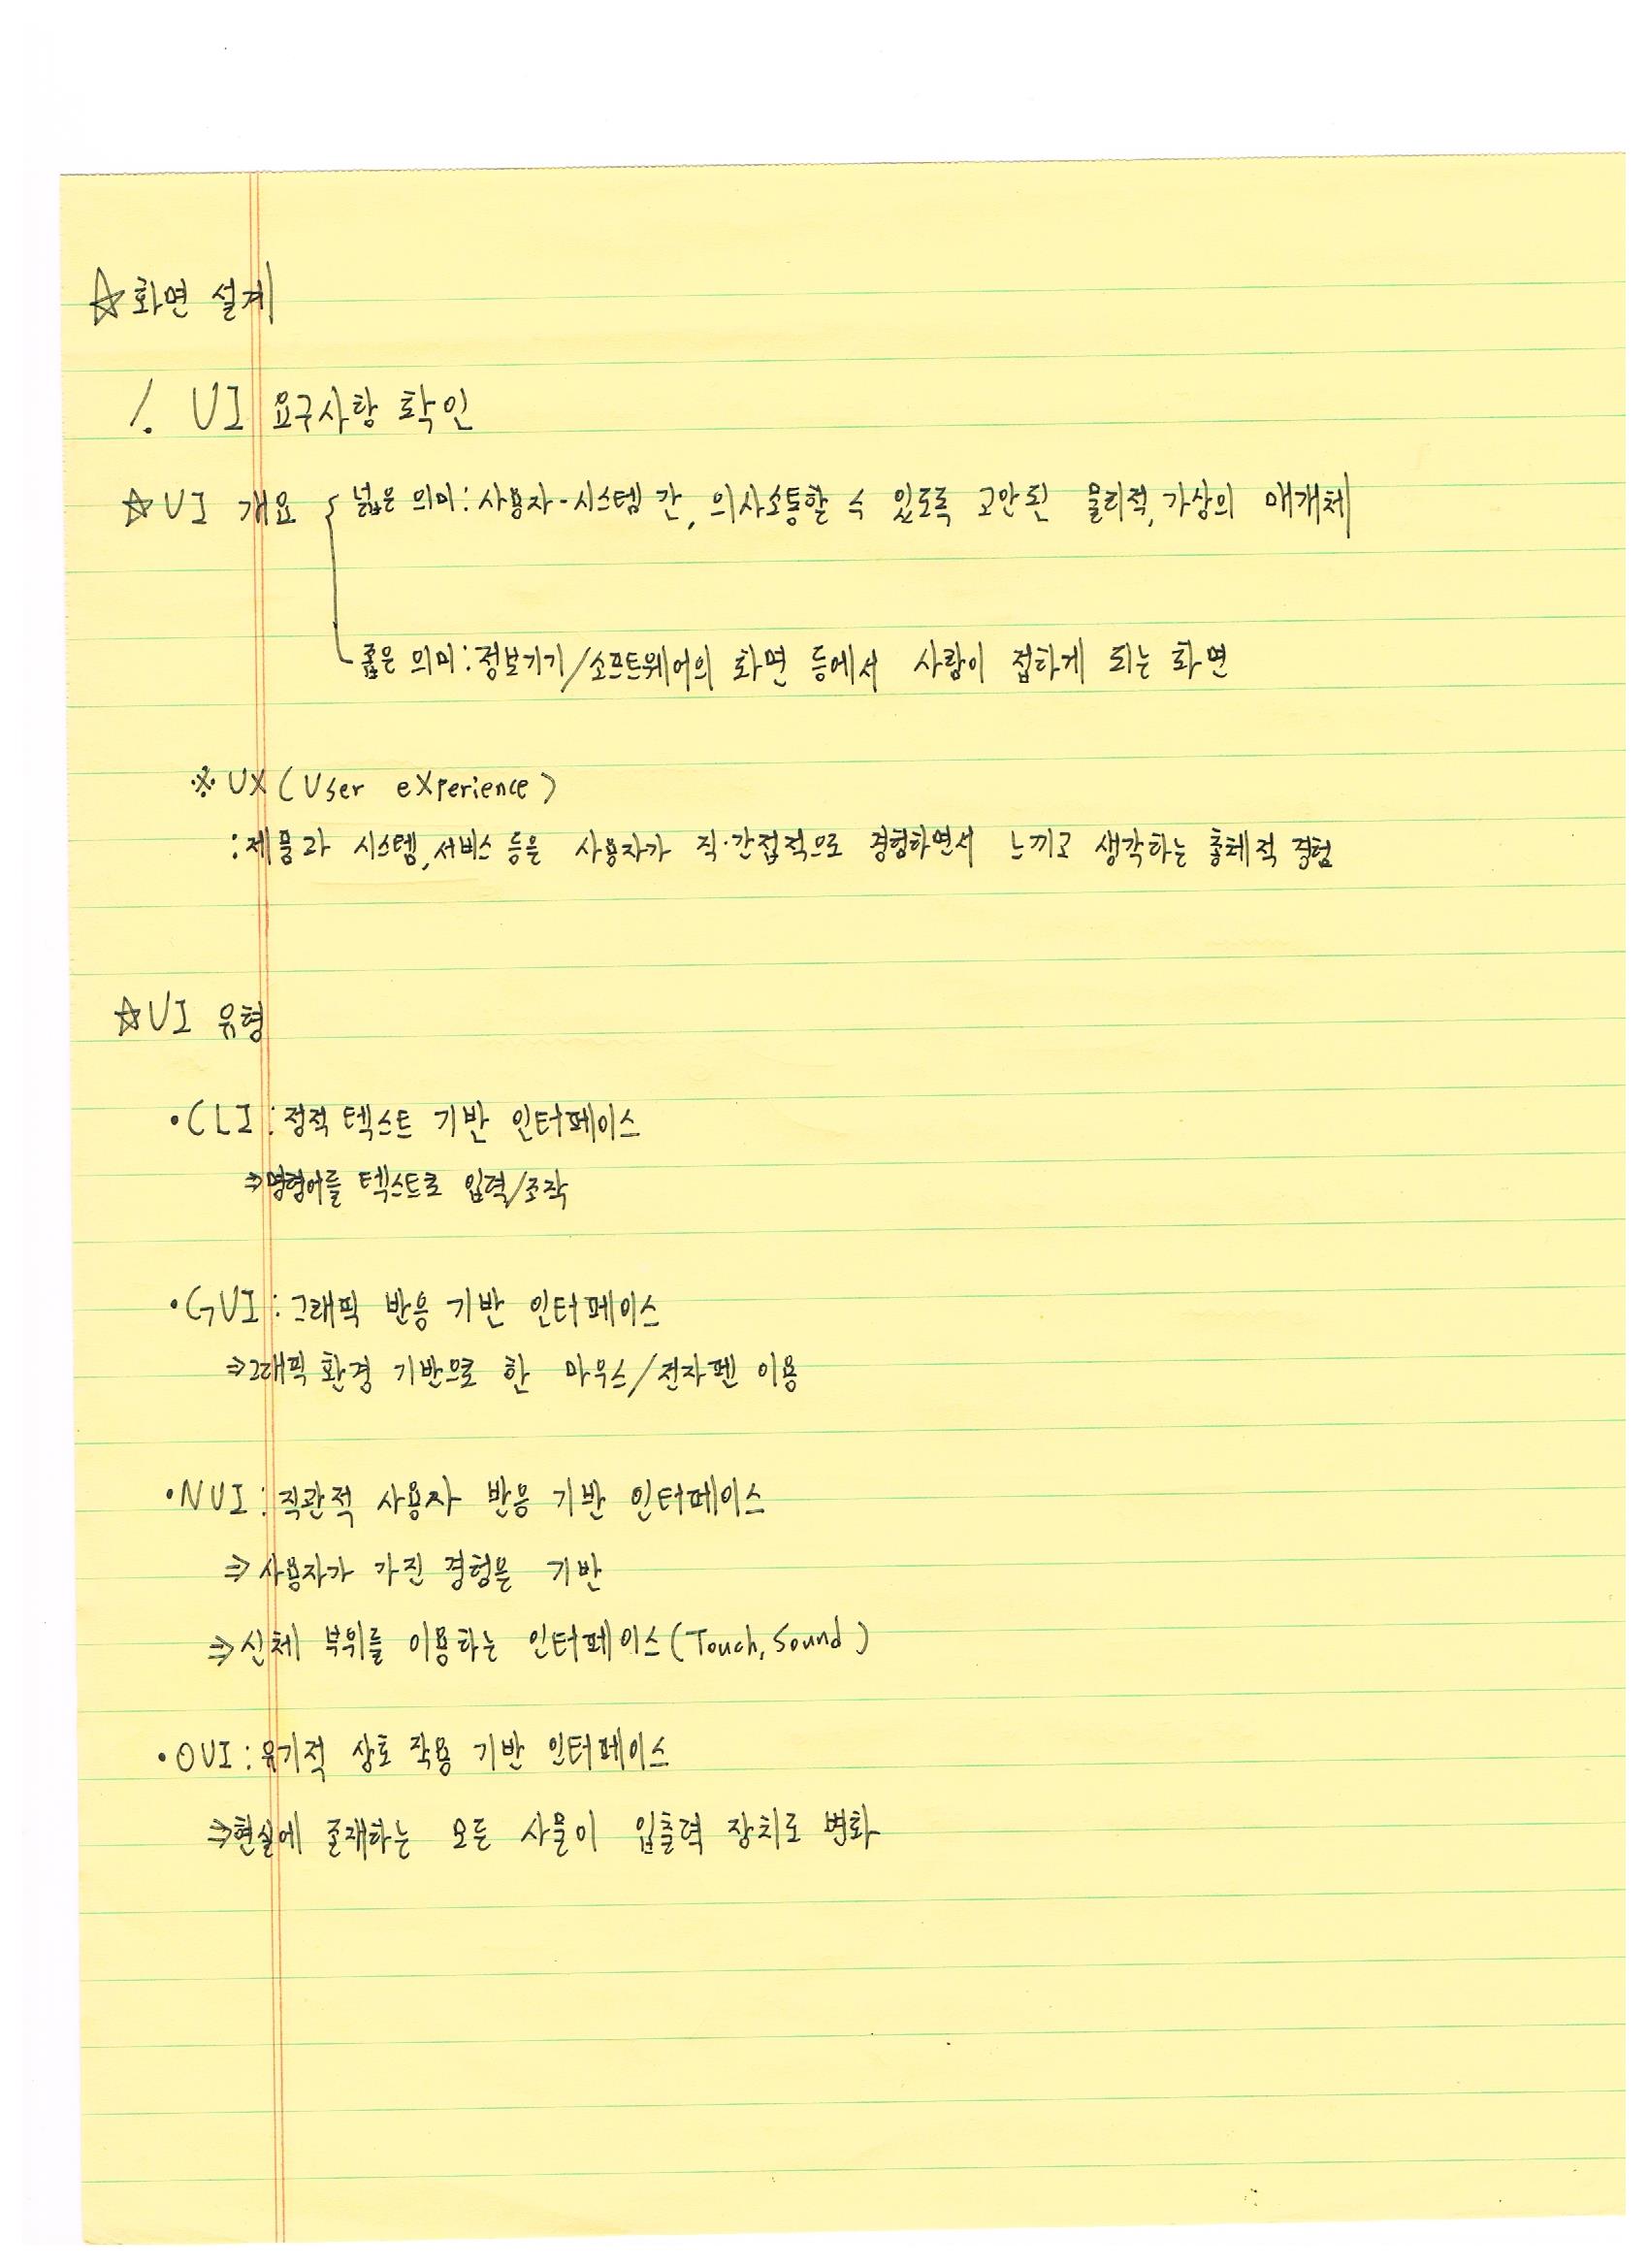 ☆화면 설계
1. UI 요구사항 확인
☆UI 개요 { 넓은 의미: 사용자-시스템 간, 의사소통할 수 있도록 고안된 물리적, 가상의 매개체
좁은 의미: 정보기기/소프트웨어의 화면 등에서 사람이 접하게 되는 화면
※ UX (User eXperience)
: 제품과 시스템, 서비스 등을 사용자가 직·간접적으로 경험하면서 느끼고 생각하는 총체적 경험
☆UI 유형
•CLI: 정적 텍스트 기반 인터페이스
⇒명령어를 텍스트로 입력/조작
•GUI: 그래픽 반응 기반 인터페이스
⇒그래픽 환경 기반으로 한 마우스/전자펜 이용
•NUI: 직관적 사용자 반응 기반 인터페이스
⇒사용자가 가진 경험을 기반
⇒신체 부위를 이용하는 인터페이스(Touch, Sound)
•OUI: 유기적 상호 작용 기반 인터페이스
⇒현실에 존재하는 모든 사물이 입출력 장치로 변화